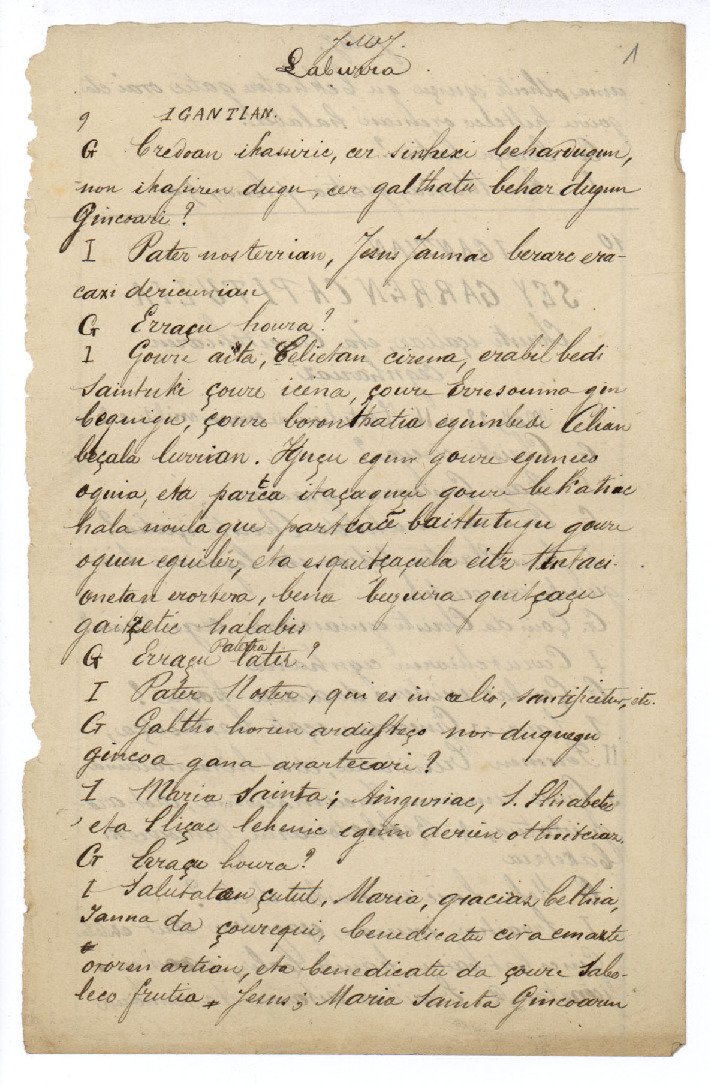 JMJ.
Laburra
1
9 IGANTIAN.
G Credoan ikassiric, cer sinhexi behardugun,
non ikassiren dugu, cer galthatu behar dugun
Gincoari?
I Pater nosterrian, Jesus Jaunac berarc era-
caxi dericunian
G Erraçu houra?
I Goure aita, Celietan cirena, erabil bedi
Saintuki çoure icena, çoure Erresouma gin
beguigu, çoure boronthatia eguinbedi Celian
beçala lurrian. Iguçu egun goure eguneco
oguia, eta parca itaçaguçu goure bekatiac
hala noula gue parcatcen baitutugu goure
oguen eguiler, eta esquitçaçula eitz tentaci-
onetan erortera, bena beguira guitçaçu
gaizetic halabis
G Erraçu Pater?
I Pater Noster, qui es in celis, santificetur, etc.
G Galtho horien ardiesteco nor duquegu
gincoa gana arartecari?
I Maria Sainta; Ainguriac, S. Elisabete
eta Elizac lehenic eguin derien othoitciaz.
G Erraçu houra?
I Salutatcen çutut, Maria, graciaz bethia,
Jauna da çourequi, benedicatu cira emazte
ororen artian, eta benedicatu da çoure Sabe-
leco frutia, Jesus; Maria Sainta Gincoaren